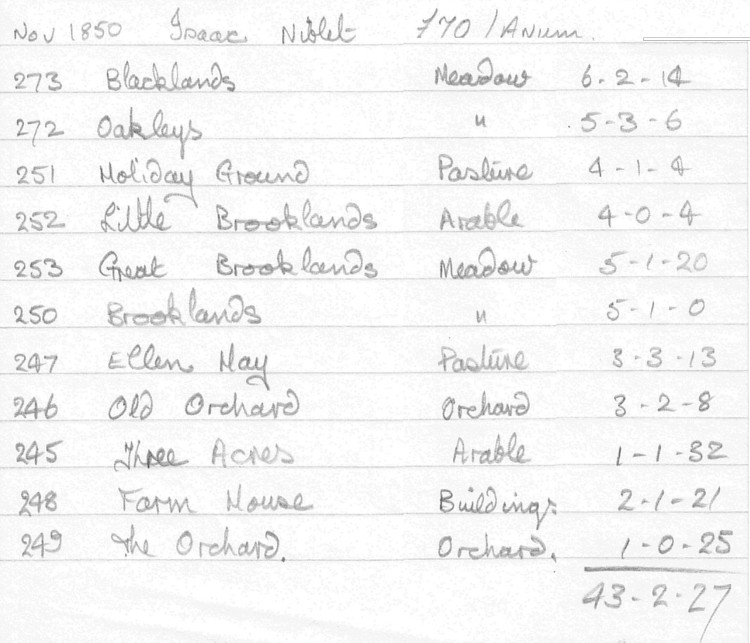 Nov 1850 Isaac Niblet £70 / Anum.
273 Blacklands Meadow 6-2-14
272 Oakleys " 5-3-6
251 Holiday Ground Pasture 4-1-4
252 Little Brooklands Arable 4-0-4
253 Great Brooklands Meadow 5-1-20
250 Brooklands " 5-1-0
247 Ellen Hay Pasture 3-3-13
246 Old Orchard Orchard 3-2-8
245 Three Acres Arable 1-1-32
248 Farm House Buildings 2-1-21
249 The Orchard. Orchard. 1-0-25
43-2-27